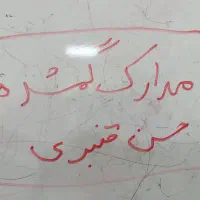 مدارک گمشده
حسن قنبری